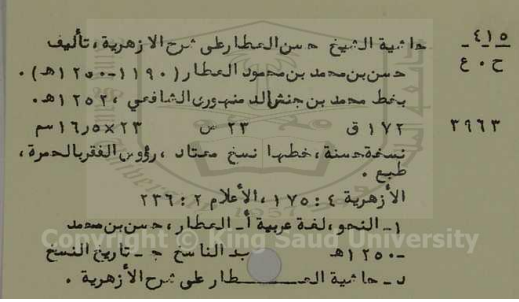 ٤١٥
ح.ع
حاشية الشيخ حسن العطار على شرح الازهرية ، تأليف
حسن بن محمد بن محمود العطار ( ١١٩٠-١٢٥٠هـ ) .
بخط محمد بن جنش الدمنهورى الشافعي ، ١٢٥٢هـ .
٣٩٦٣ ١٧٢ ق ٢٣ س ٢٣×١٦٫٥ سم
نسخة حسنة ، خطها نسخ معتاد ، رؤوس الفقر بالحمرة ،
طبع .
الأزهرية ٤ : ١٧٥ ، الأعلام ٢ : ٢٣٦
١- النحو ، لغة عربية أ- العطار ، حسن بن محمد
-١٢٥٠هـ ب- الناسخ ج- تاريخ النسخ
د- حاشية العطار على شرح الأزهرية .
Copyright © King Saud University